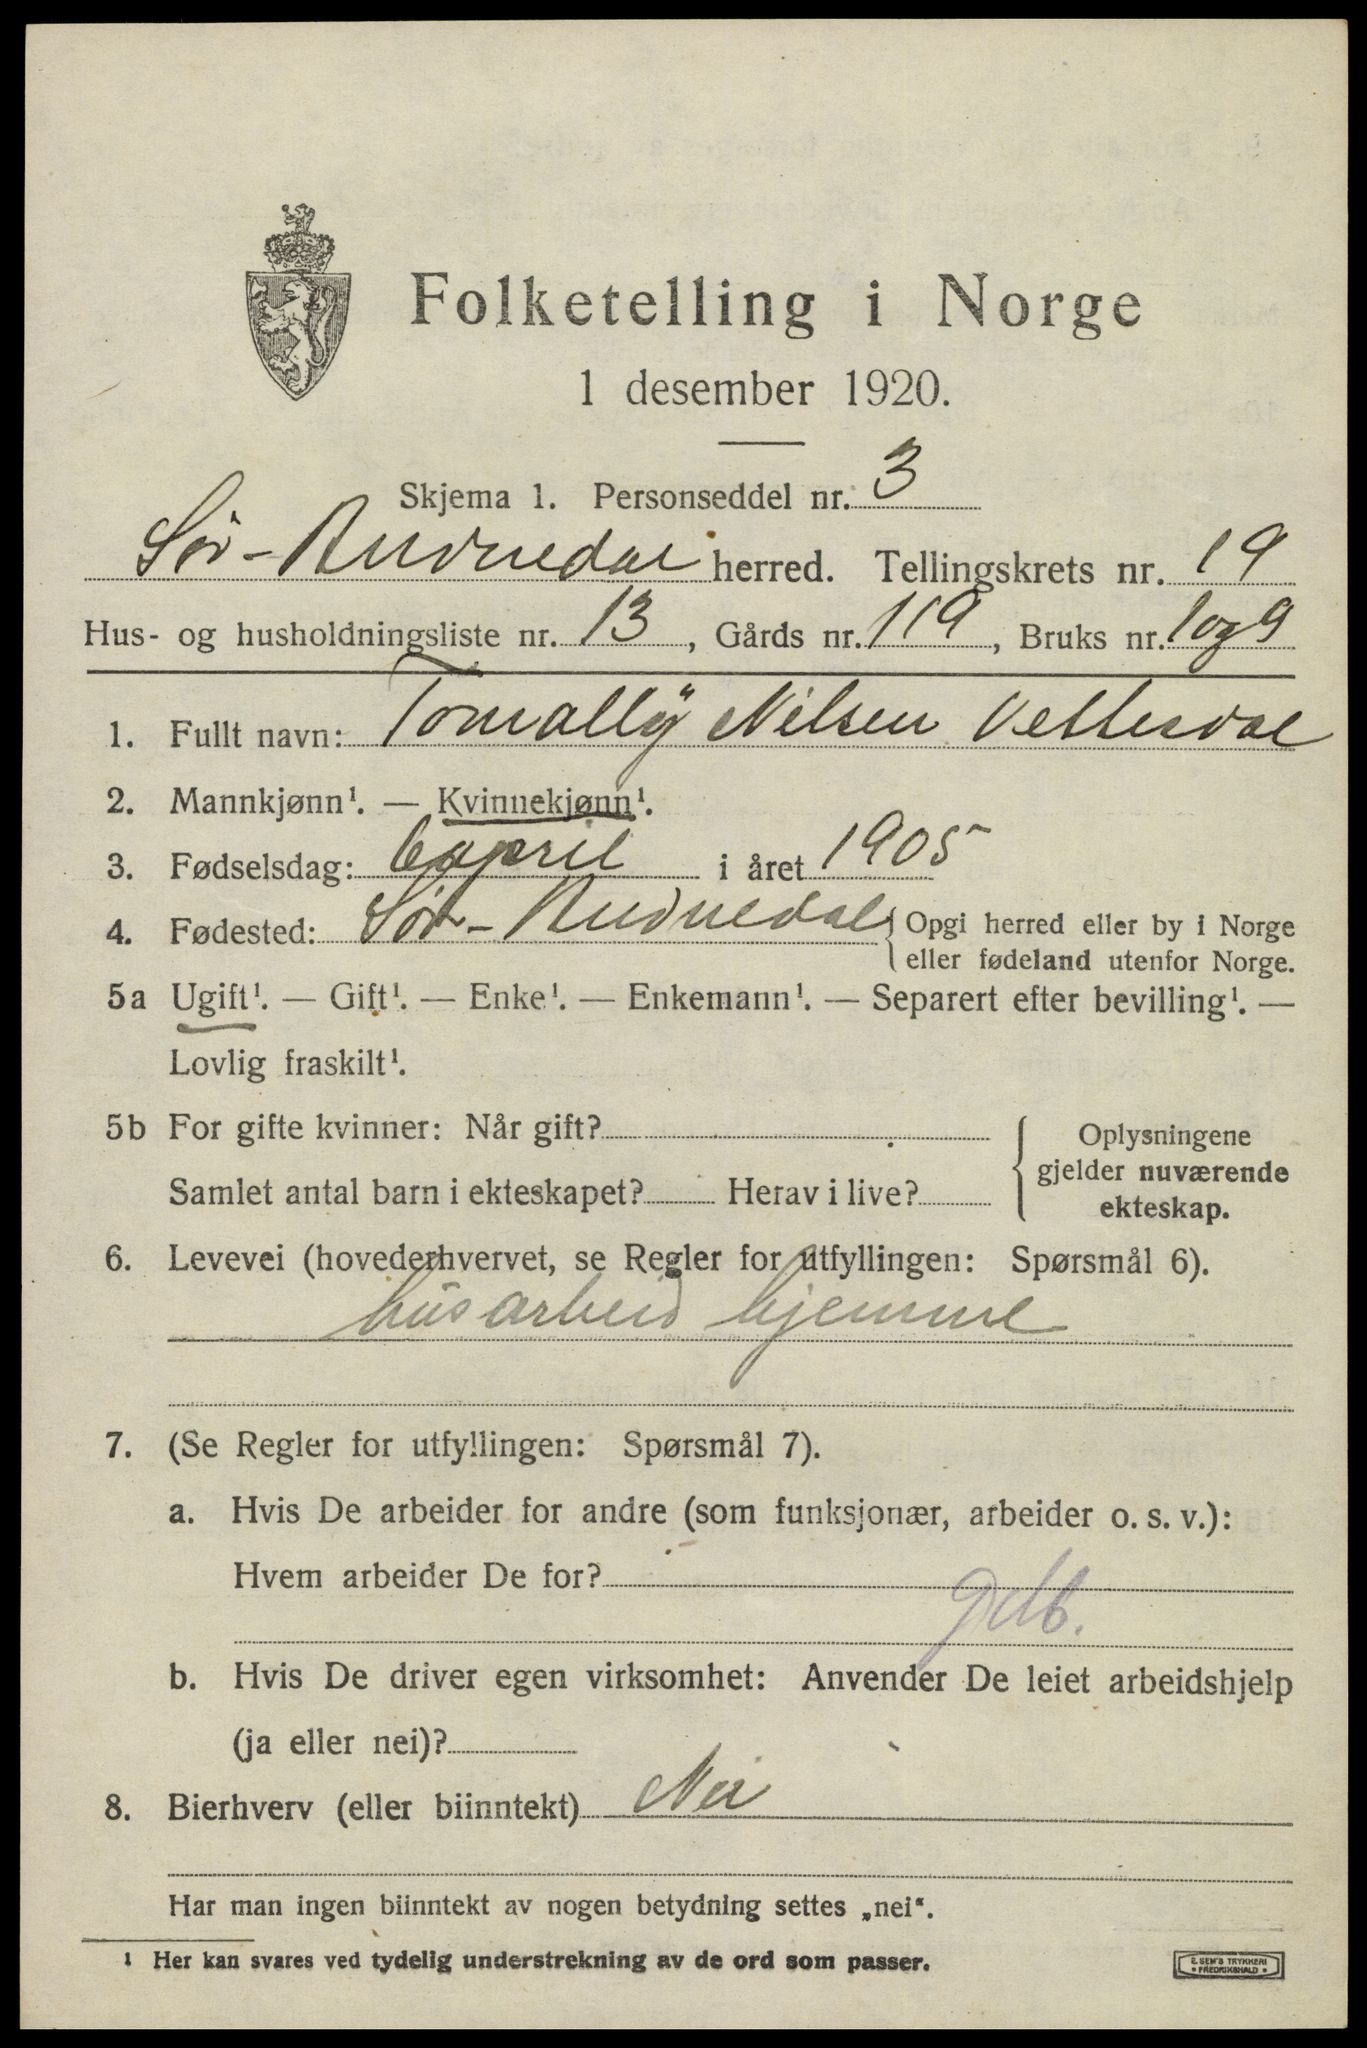 Folketelling i Norge
1 desember 1920.
Skjema 1. Personseddel nr. 3
Sör-Audnedal herred. Tellingskrets nr. 19
Hus- og husholdningsliste nr. 13, Gårds nr. 119, Bruks nr. 1 og 9
1. Fullt navn: Tomally Nilsen Vettesdal
2. Mannkjønn¹. — Kvinnekjønn¹.
3. Fødselsdag: 6 april i året 1905
4. Fødested: Sör-Audnedal { Opgi herred eller by i Norge
eller fødeland utenfor Norge.
5a Ugift¹. — Gift¹. — Enke¹. — Enkemann¹. — Separert efter bevilling¹. —
Lovlig fraskilt¹.
5b For gifte kvinner: Når gift?
Samlet antal barn i ekteskapet? Herav i live?
Oplysningene
gjelder nuværende
ekteskap.
6. Levevei (hovederhvervet, se Regler for utfyllingen: Spørsmål 6).
husarbeid hjemme
7. (Se Regler for utfyllingen: Spørsmål 7).
a. Hvis De arbeider for andre (som funksjonær, arbeider o. s. v.):
Hvem arbeider De for?
b. Hvis De driver egen virksomhet: Anvender De leiet arbeidshjelp
(ja eller nei)?
8. Bierhverv (eller biinntekt) Nei
Har man ingen biinntekt av nogen betydning settes „nei“.
¹ Her kan svares ved tydelig understrekning av de ord som passer.
E. SEM'S TRYKKERI
• FREDRIKSHALD •